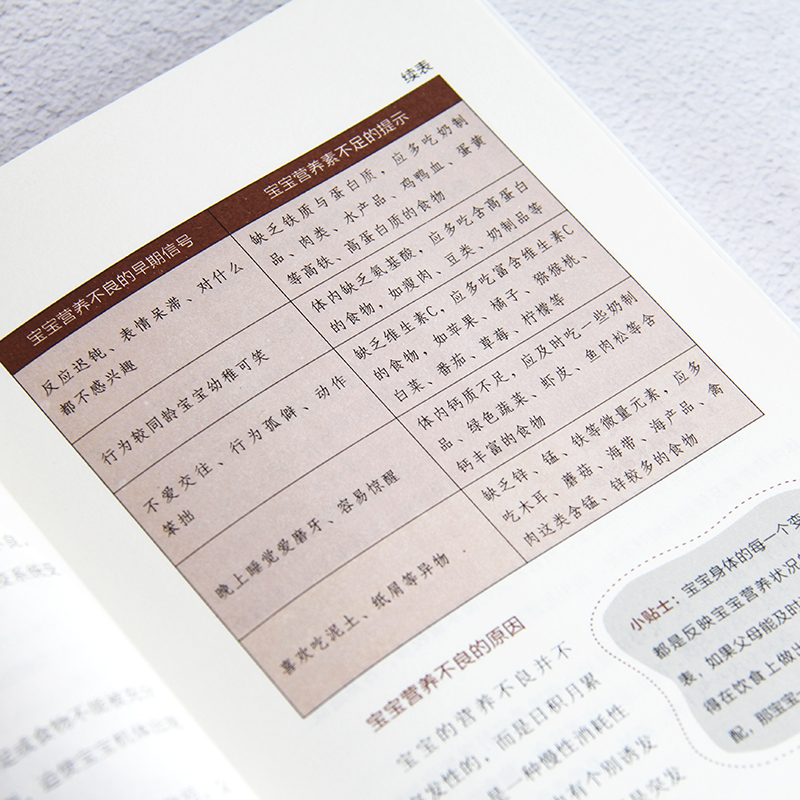 续表
宝宝营养不良的早期信号
宝宝营养素不足的提示
反应迟钝、表情呆滞、对什么
都不感兴趣
缺乏铁质与蛋白质，应多吃奶制
品、肉类、水产品、鸡鸭血、蛋黄
等高铁、高蛋白质的食物
行为较同龄宝宝幼稚可笑
体内缺乏氨基酸，应多吃含高蛋白
的食物，如瘦肉、豆类、奶制品等
不爱交往、行为孤僻、动作
笨拙
缺乏维生素C，应多吃富含维生素C
的食物，如苹果、橘子、猕猴桃、
白菜、番茄、草莓、柠檬等
晚上睡觉爱磨牙、容易惊醒
体内钙质不足，应及时吃一些奶制
品、绿色蔬菜、虾皮、鱼肉松等含
钙丰富的食物
喜欢吃泥土、纸屑等异物
缺乏锌、锰、铁等微量元素，应多
吃木耳、蘑菇、海带、海产品、禽
肉这类含锰、锌较多的食物
宝宝营养不良的原因
宝宝的营养不良并不
突发性的，而是日积月累
是一种慢性消耗性
有个别诱发
突发
小贴士：宝宝身体的每一个变
都是反映宝宝营养状况
表，如果父母能及时
得在饮食上做出
配，那宝宝